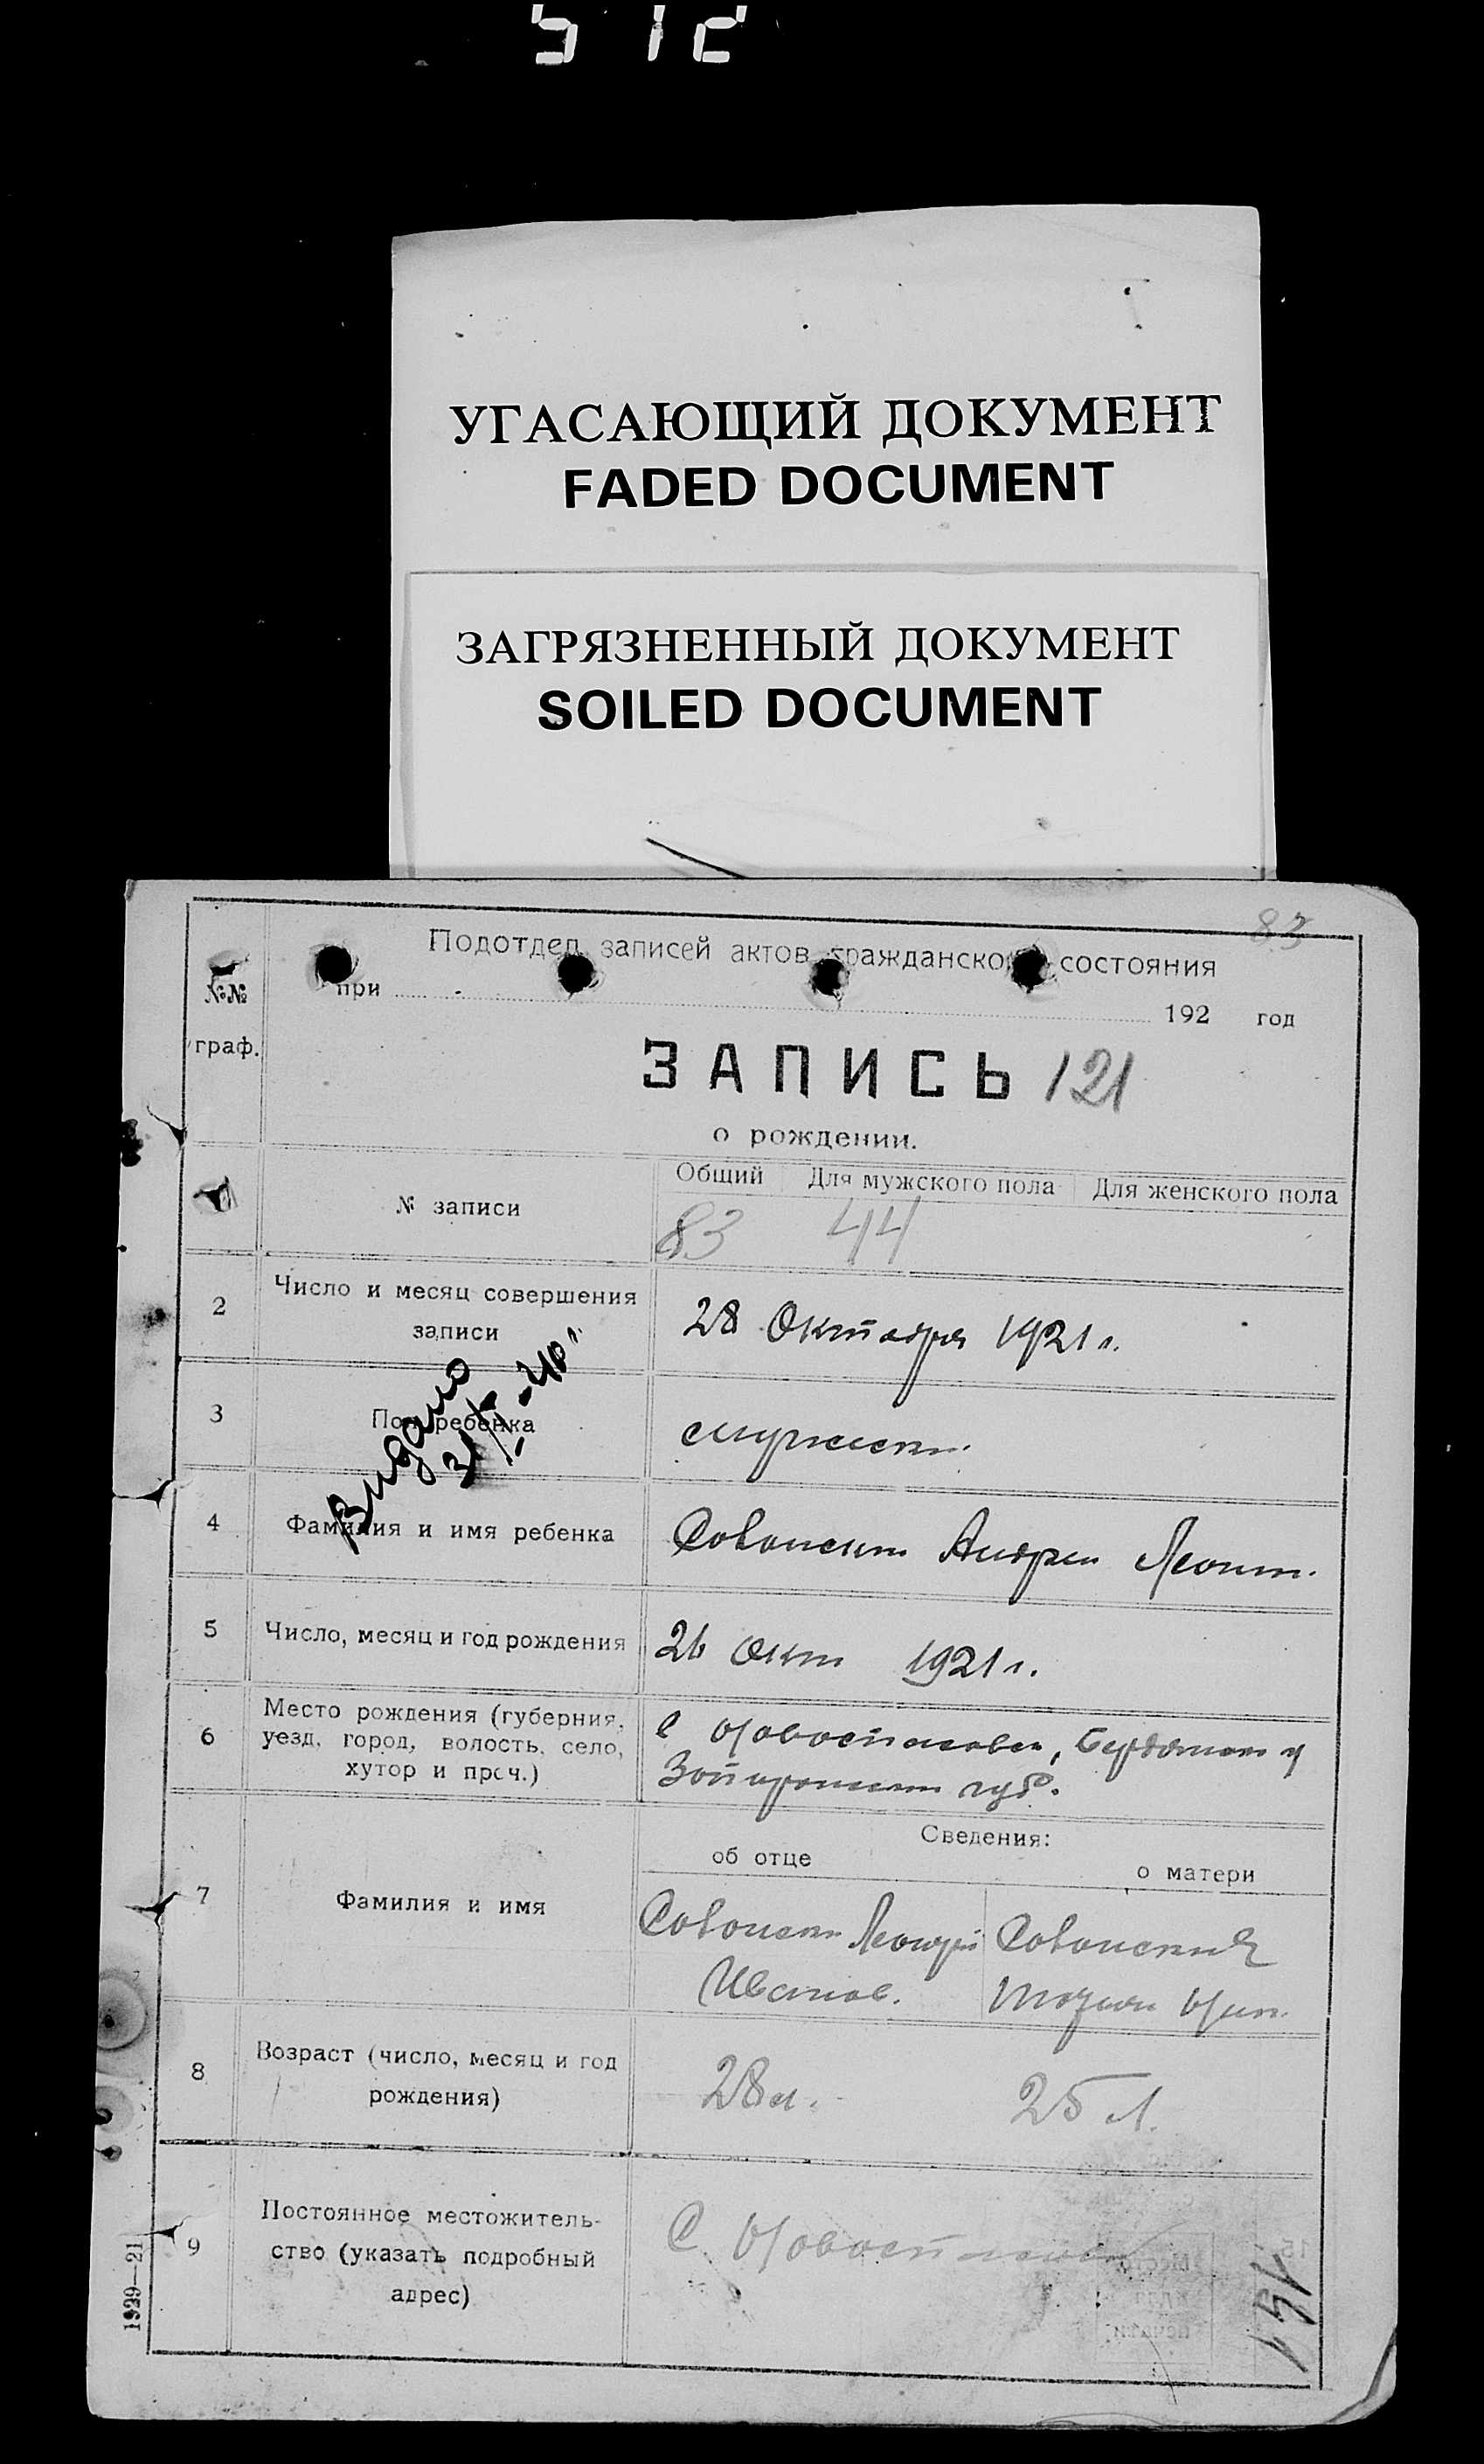 512
УГАСАЮЩИЙ ДОКУМЕНТ
FADED DOCUMENT
ЗАГРЯЗНЕННЫЙ ДОКУМЕНТ
SOILED DOCUMENT
83
№№
граф.
Подотдел записей актов гражданского состояния
при 192 год
ЗАПИСЬ 121
о рождении.
№ записи
Общий Для мужского пола Для женского пола
83 44
2 Число и месяц совершения
записи
28 Октября 1921 г.
Видано
31/X-40
3 Пол ребенка
4 Фамилия и имя ребенка
Андрей Леонт.
5 Число, месяц и год рождения
26 Окт 1921 г.
6 Место рождения (губерния,
уезд, город, волость, село,
хутор и проч.)
с Новоспасовка, Бердянск у
Запорожск губ.
Сведения:
об отце о матери
7 Фамилия и имя
Иванов.
8 Возраст (число, месяц и год
рождения)
28 л. 25 л.
9 Постоянное местожитель-
ство (указать подробный
адрес)
С. Новоспасовка
1929—21